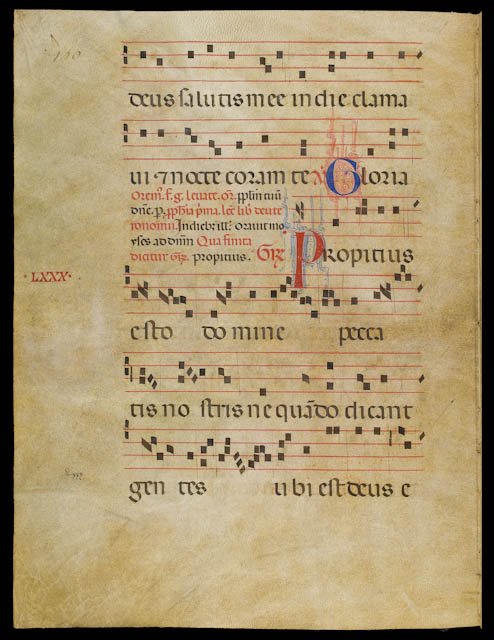 160
deus salutis mee in die clama
ui ⁊ nocte coram te ℣ Gloria
Orem᷒. f. g. leuate. Or. ppl̄m tuū
dn̄e. p. pphīa p̄ma. lec̄ lib deute
ronomii. In dieb᷒ ill̓. orauit mo
yses ad dn̄m Qua finita
dicitur Gr̄. propitius. Gr̄ Propitius
LXXX
esto domine pecca
tis nostris ne quādo dicant
gentes ubi est deus e